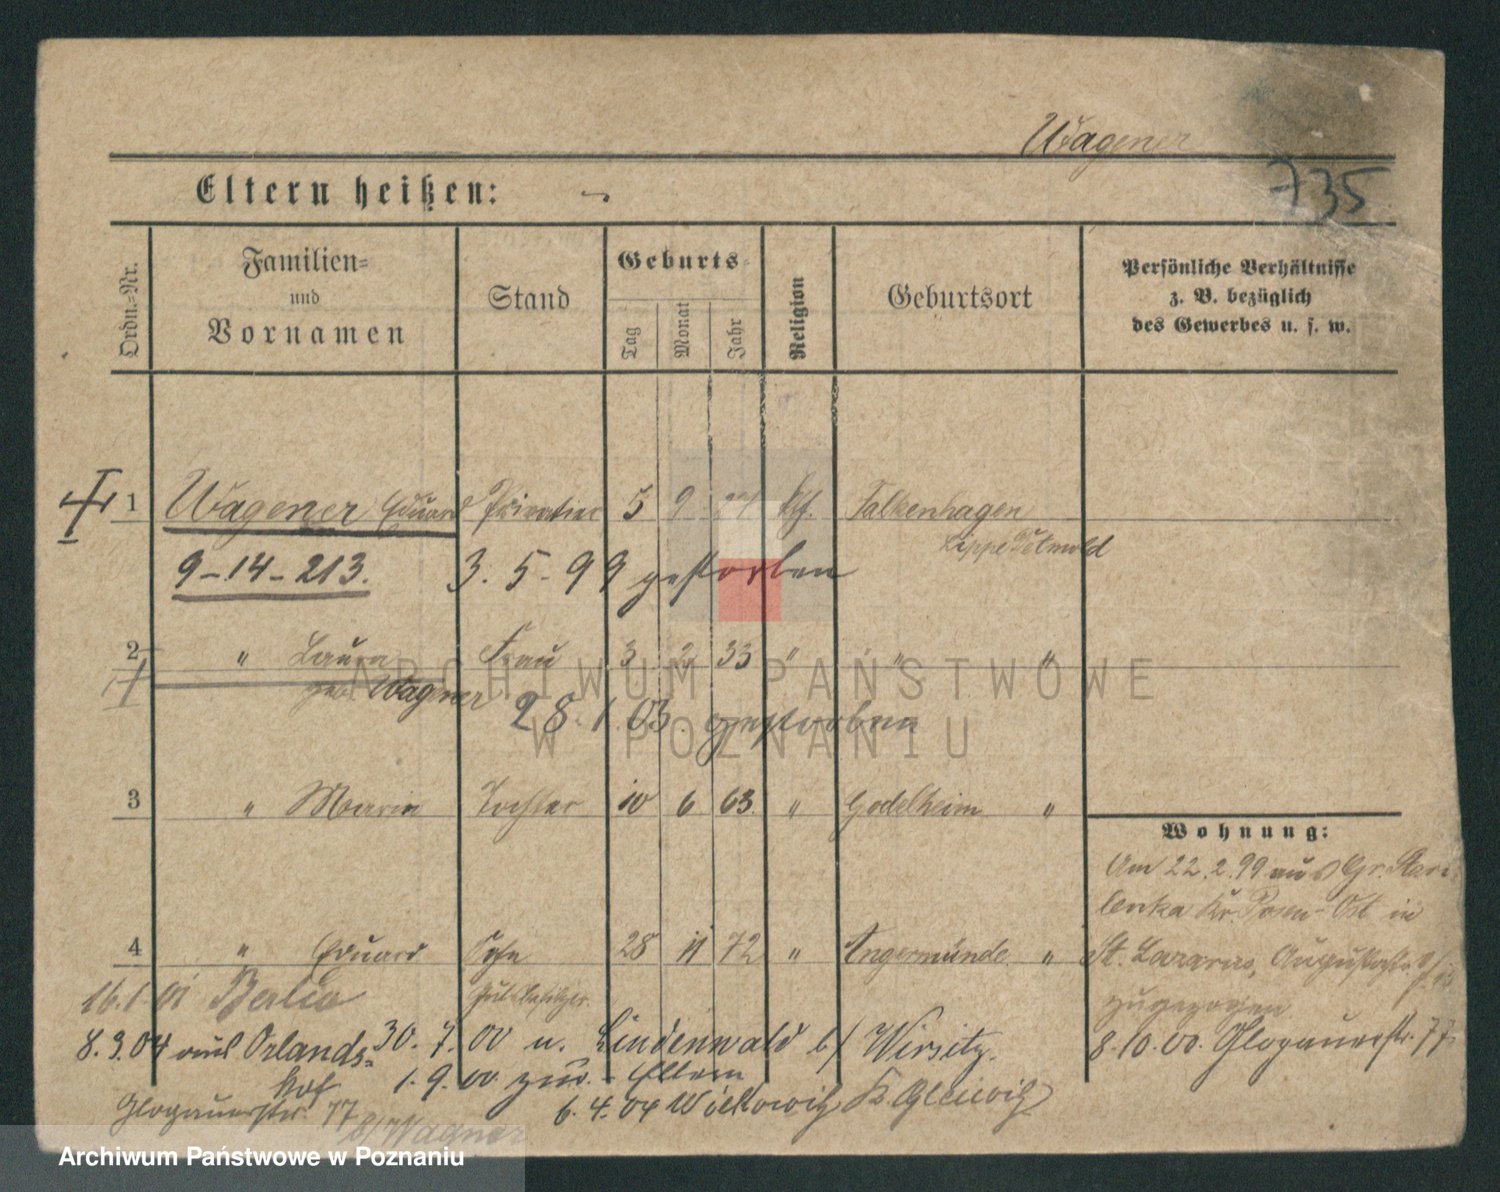 Wagener
735
Eltern heißen:
Ordn.-Nr.
Familien-
und
Vornamen
Stand
Geburts-
Tag
Monat
Jahr
Religion
Geburtsort
Persönliche Verhältnisse
z. B. bezüglich
des Gewerbes u. s. w.
1 Wagener Eduard Privatier 5 9 kth. Falkenhagen
Lippe Detmold
9-14-213. 3.5-99 gestorben
2 " Laura Frau 3 2 33 " " "
geb. Wagner
28.1.03. gestorben
3 " Maria Tochter 10 6 63. " Godelheim "
Wohnung:
Am 22.2.99 aus Gr. Star-
lenka Kr. Posen-Ost in
4 " Eduard Sohn 28 11 72 " Angermünde "
St. Lazarus, Augustastr.
Gutsbesitzer
zugezogen
16.1.01 Berlin
8.3.04 aus Orlands-
hof
30.7.00 n. Lindenwald b/ Wirsitz.
8.10.00. Glogauerstr. 77
1.9.00 zur. Eltern
Glogauerstr. 77
b/Wagner
6.4.04 Wilkowitz K. Gleiwitz
ARCHIWUM PAŃSTWOWE
W POZNANIU
Archiwum Państwowe w Poznaniu